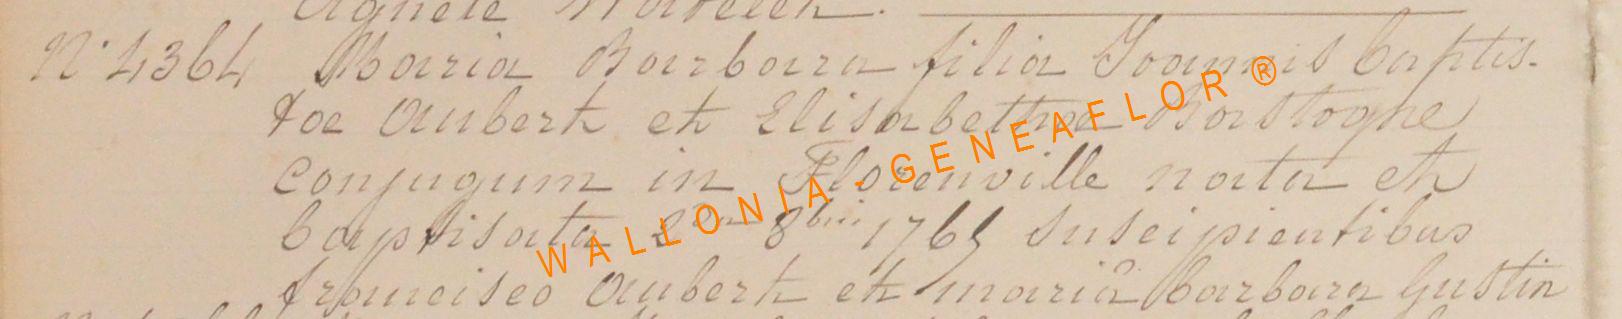 Agnete
N° 4364 Maria Barbara filia Joannis baptis-
tae Aubert et Elisabethae Bastogne
conjugum in Florenville nata et
baptisata 8bris 1765 suscipientibus
francisco Aubert et mariâ barbara Gustin
WALLONIA - GENEAFLOR ®